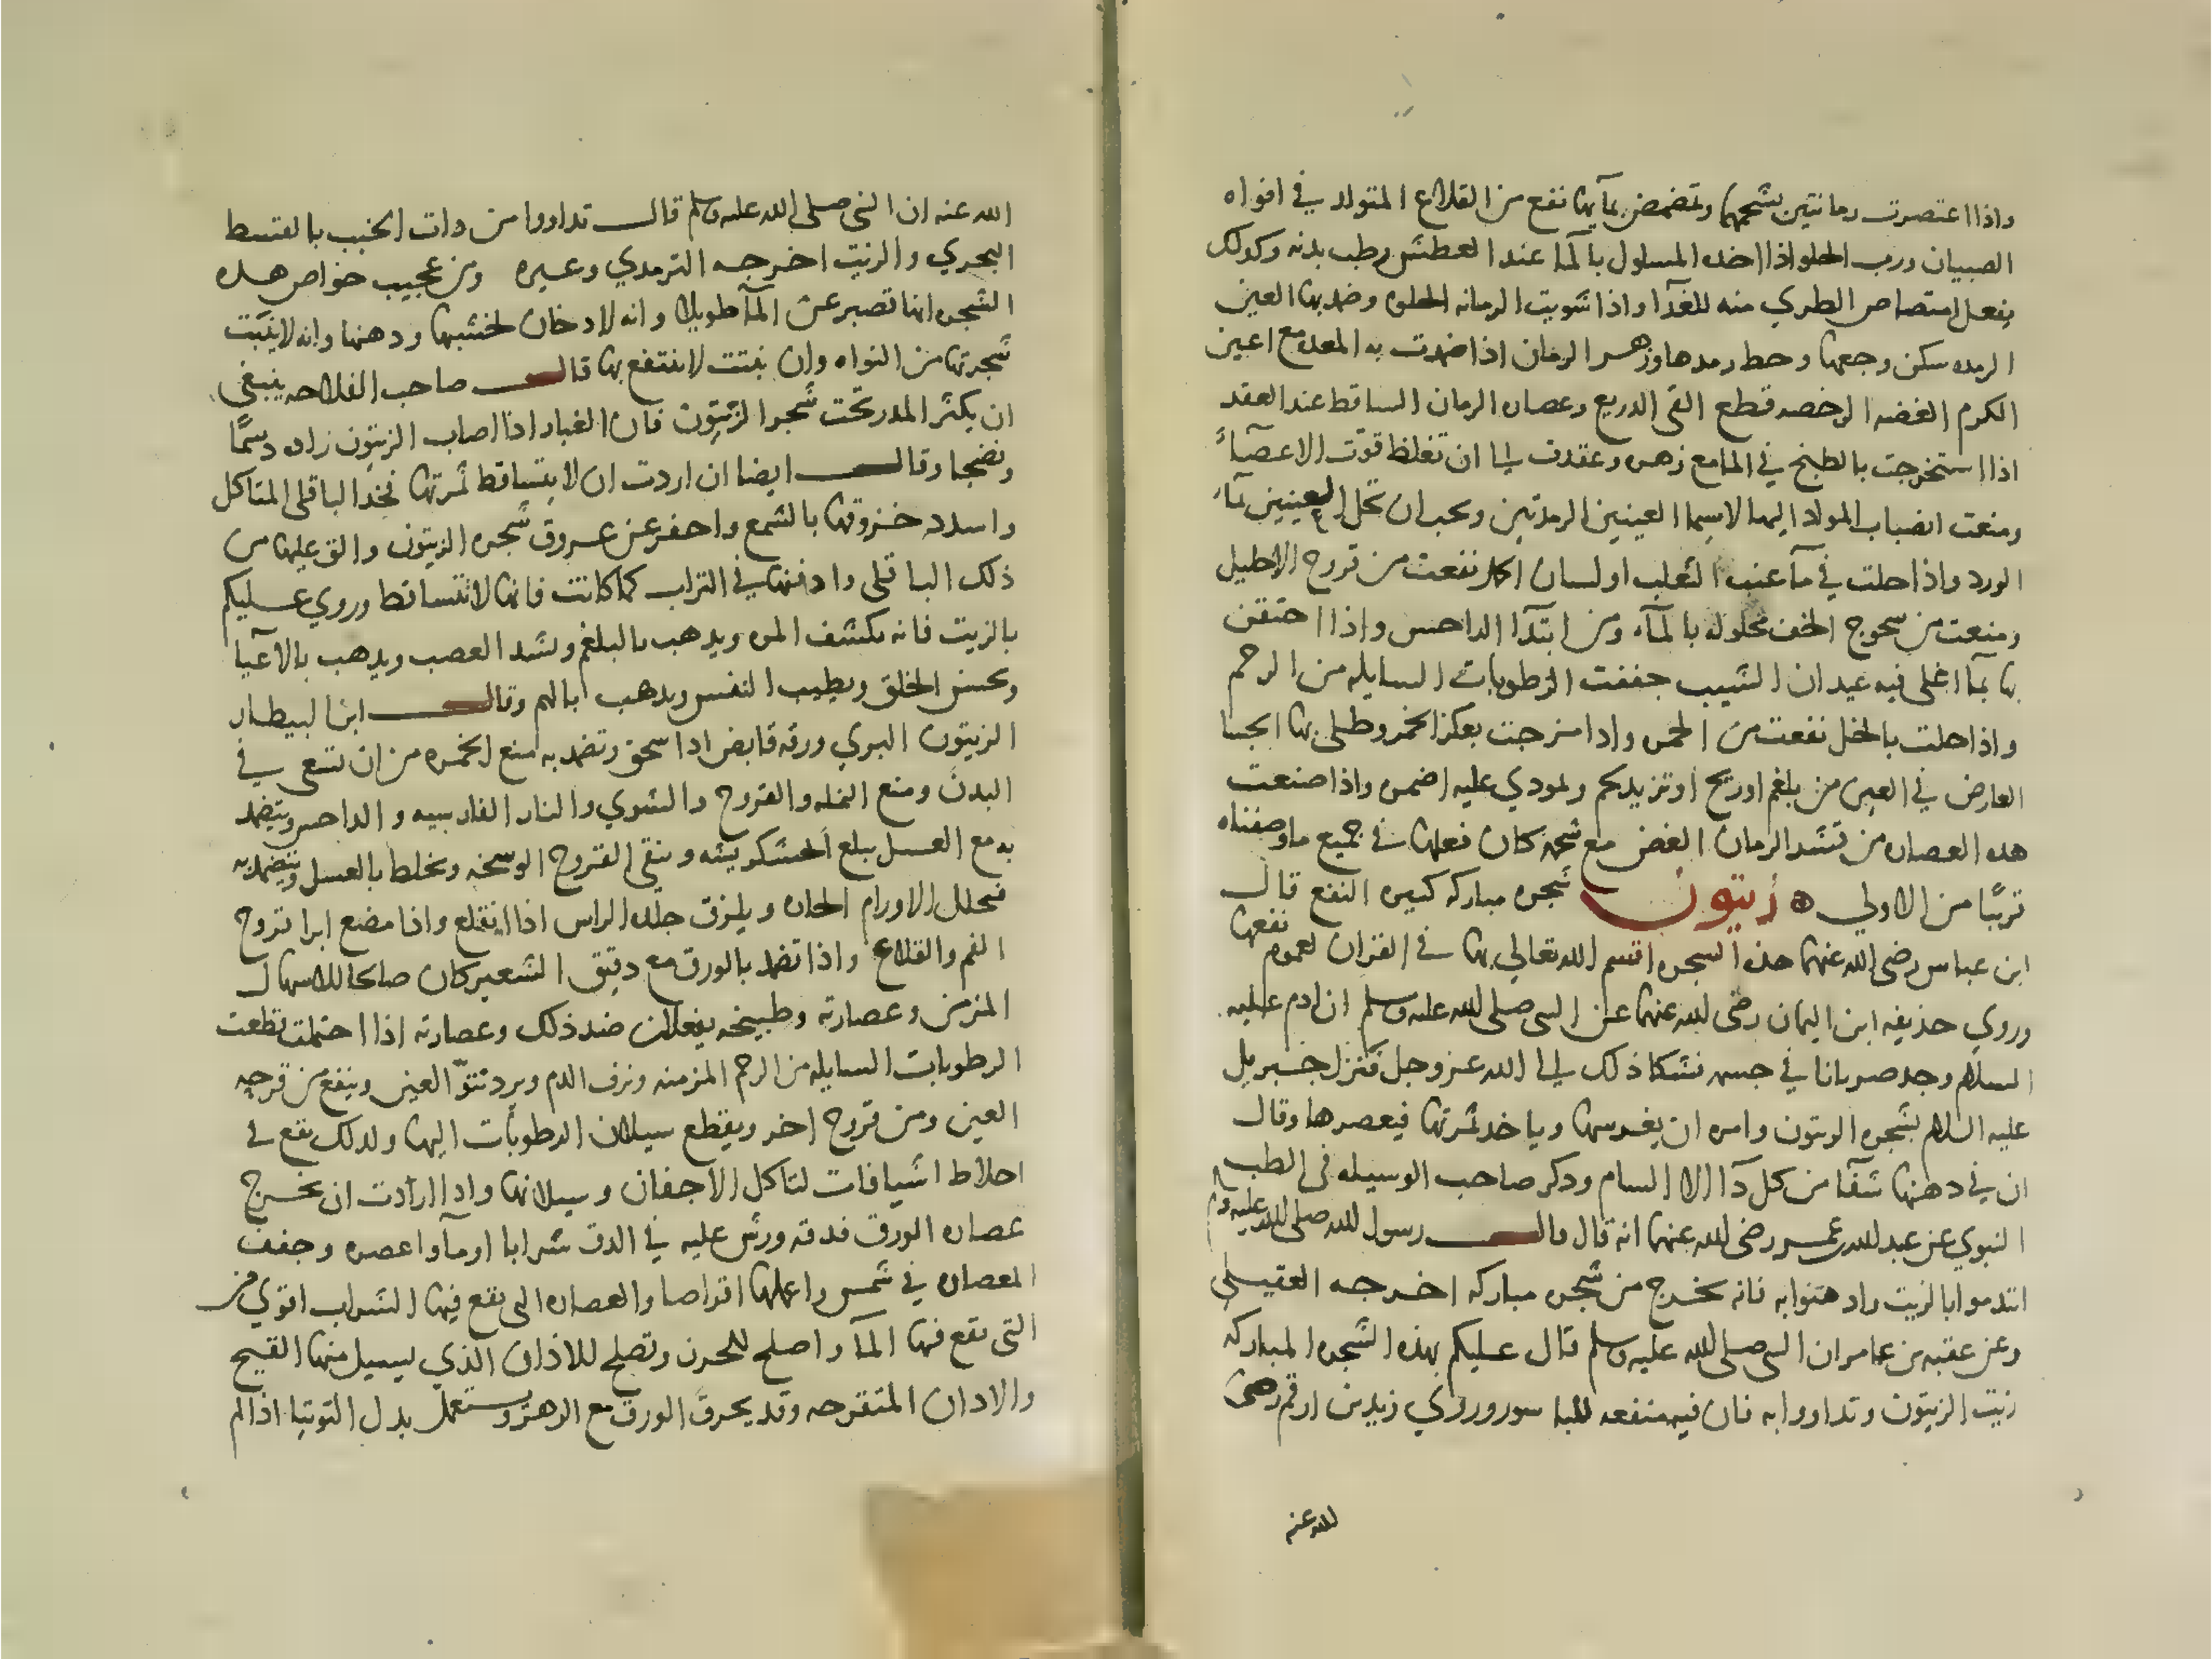 واذا اعتصرت رمانتين بشحمهما وتمضمض بمآيهما نفع من القلاع المتولد في افواه
الصبيان ورب الحلو اذا اخده المسلول بالمآ عند العطش رطب بدنه وكدلك
يفعل امتصاص الطري منه للغدآ واذا شويت الرمانه الحلوه وضمد بها العين
الرمده سكن وجعها وحط رمدها وزهر الرمان اذا ضمدت به المعده مع اعين
الكرم الغضه الرخصه قطع القي الدريع وعصاره الرمان الساقط عند العقد
اذا استخرجت بالطبخ في المامع زهره وعقدت الي ان تغلظ قوّت الاعضآء
ومنعت انصباب المواد اليها لاسيما العينين الرمدتين ويجب ان تحل للعينين بمآء
الورد واذا حلت في مآ عنب الثعلب او لسان الحمل نفعت من قروح الاحليل
ومنعت من سحوج الخف محلوله بالمآء ومن ابتدآ الداحس واذا احتقن
بها بمآ اغلي فيه عيدان الشبب جففت الرطوبات السايله من الرحم
واذا حلت بالخل نفعت من الحمره وادا مزجت بعكر الخمر وطلي بها الجسا
العارض في العين من بلغم اوريح او تزيد لحم ولمودي عليه اضمره واذا صنعت
هده العصاره من قشر الرمان الغض مع شحمه كان فعلها في جميع ماوصفناه
قريبًا من الاولي ه زيتون شجره مباركه كثيره النفع قال
ابن عباس رضي الله عنهما هذه الشجره اقسم الله تعالي بها في القران لعموم نفعها
وروي حذيفه ابن اليمان رضي الله عنهما عن النبي صلى الله عليه وسلم ان ادم عليه
السلام وجد ضربانا في جسده فشكا ذلك الي الله عز وجل فنزل جبريل
عليه السلام بشجره الزيتون وامره ان يغرسها وياخد ثمرتها فيعصرها وقال
ان في دهنها شفآ من كل دآ الا السام ودكر صاحب الوسيله في الطب
النبوي عن عبد الله عمر رضي الله عنهما انه قال قال رسول الله صلى الله عليه وسلم
ائتدموا بالزيت وادهنوا به فانه يخرج من شجره مباركه اخرجه العقيلي
وعن عقبه بن عامر ان النبي صلى الله عليه وسلم قال عليكم بهذه الشجره المباركه
زيت الزيتون وتداووا به فان فيه منفعه للباسور وروي زيد بن ارقم رضي
الله عنه
الله عنه ان النبي صلى الله عليه وسلم قال تداووا من دات الجنب بالقسط
البحري والزيت اخرجه الترمدي وغيره ومن عجيب خواص هده
الشجره انها تصبر عن المآ طويلا وانه لادخان لخشبها ودهنها وانه لاينبت
شجرتها من النواه وان نبتت لاينتفع بها قال صاحب الفلاحه ينبغي
ان يكثر المدر تحت شجر الزيتون فان الغبار اذا اصاب الزيتون زاده دسمًا
ونضجا وقال ايضا ان اردت ان لايتساقط ثمرتها فخد الباقلي المتاكل
واسدد خروقها بالشمع واحفر عن عروق شجره الزيتون والق عليها من
ذلك الباقلي وادفنها في التراب كما كانت فانها لاتتساقط وروي عليكم
بالزيت فانه يكشف المره ويدهب بالبلغم ويشد العصب ويدهب بالاعيا
ويحسن الخلق ويطيب النفس ويدهب بالهم وقال ابن البيطار
الزيتون البري ورقه قابض ادا سحق وتضمد به منع الحمره من ان تسعي في
البدن ومنع النمله والقروح والشوي والنار الفارسيه والداحس ويتضمد
به مع العسل يبلع الخشكريشه وينقي القروح الوسخه ويخلط بالعسل ويتضمد به
فيحلل الاورام الحاره ويلزق جلده الراس اذا انقلع واذا مضع ابرا قروح
الفم والقلاع واذا تضمد بالورق مع دقيق الشعير كان صالحا للاسهال
المزمن وعصارته وطبيخه يفعلان ضد ذلك وعصارته اذا احتملت قطعت
الرطوبات السايله من الرحم المزمنه ونزف الدم ويرد نتوّ العين وينفع من قرحه
العين ومن قروح اخر ويقطع سيلان الرطوبات اليها ولدلك يقع في
اخلاط اشيافات لتاكل الاجفان وسيلانها وادا اردت ان تخرج
عصاره الورق فدقه ورش عليه في الدق شرابا اومآ واعصره وجفف
العصاره في شمس واعملها اقراصا والعصاره التي يقع فيها الشراب اقوي من
التي يقع فيها المآ واصلح للخزن وتصلح للاذان الذي يسيل منها القيح
والادان المتقرحه وقد يحرق الورق مع الزهر ويستعمل بدل التوتيا اذا لم